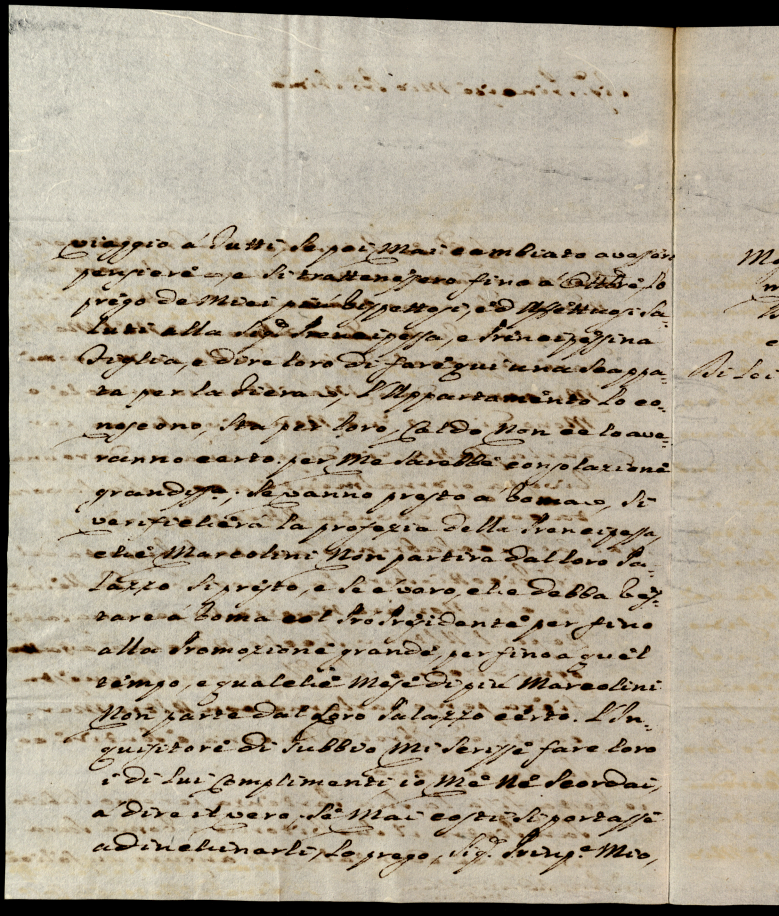 viaggio à Tutti, Se poi Mai cambiato avesser
pensiere, e si trattenessero fino a Ottbre, Lo
prego de Miei più rispettosi, ed Affettuosi Sa-
luti alla Sigra Prencipessa, e Principessina
Figlia, e dire loro di fare qui una Scappa-
ta per la Fiera, L'Appartamento Lo co-
noscono, Sta per loro, Caldo Non ce lo ave-
ranno certo, per Me Sarebbe consolazione
grandissa; Se vanno presto a Roma, Si
verifichera la profezia della Prencipessa,
che Marcolini Non partirà dal loro Pa-
lazzo Si presto, e Se è vero, che debba Res-
tare à Roma col ProPresidente per fino
alla Promozione grande, per fino a quel
tempo, e qualche Mese di più Marcolini
Non parte dal Loro Palazzo certo. L'In-
quisitore di Gubbio Mi Scrisse fare loro
i di lui Complimenti, io Me Ne Scordai,
à dire il vero, Se Mai costì Si portasse
ad inchinarli, Lo prego, Sigr Prinpe Mio,
Di Lei